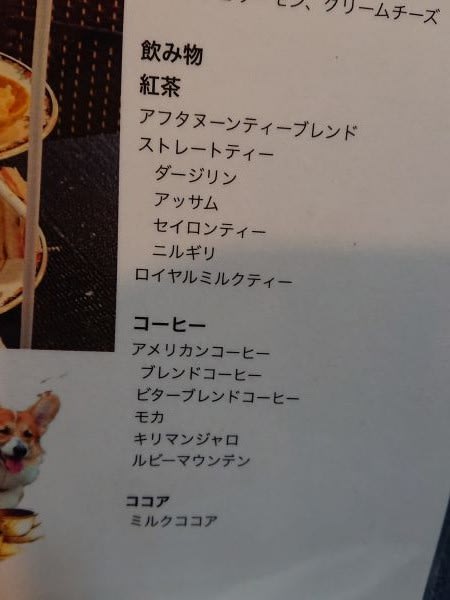 クリームチーズ
飲み物
紅茶
アフタヌーンティーブレンド
ストレートティー
ダージリン
アッサム
セイロンティー
ニルギリ
ロイヤルミルクティー
コーヒー
アメリカンコーヒー
ブレンドコーヒー
ビターブレンドコーヒー
モカ
キリマンジャロ
ルビーマウンテン
ココア
ミルクココア